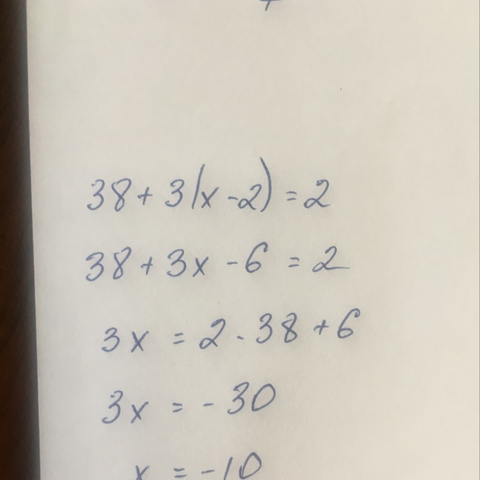 38 + 3(x - 2) = 2
38 + 3x - 6 = 2
3x = 2 - 38 + 6
3x = - 30
x = - 10